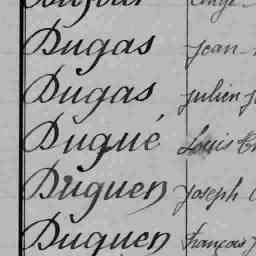 Dugas Jean
Dugas Julien
Dugué Louis
Duguen Joseph
Duguen François